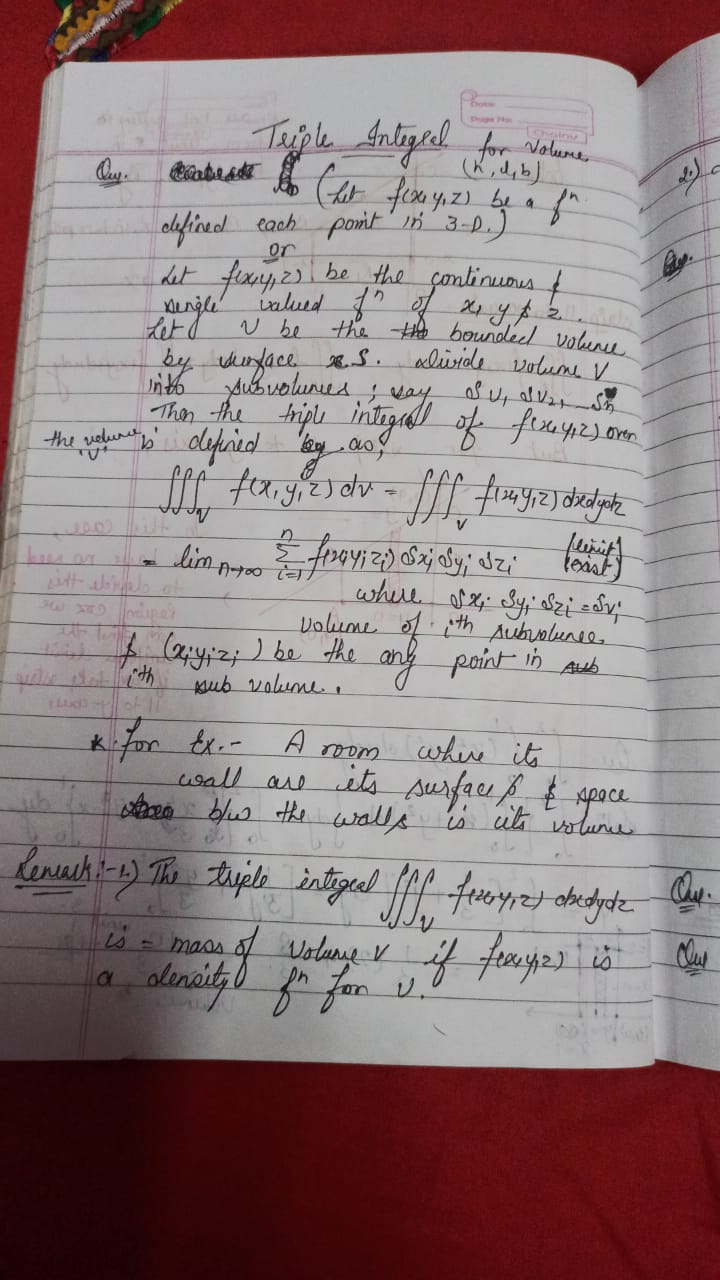 Triple Integral for volume
(h, l, b)
Que. (Let f(x, y, z) be a fⁿ
defined each point in 3-D.)
or
Let f(x,y,z) be the continuous &
single valued fⁿ of x, y & z.
Let V be the bounded volume
by surface S. divide volume V
into subvolumes; say δV₁, δV₂, --
Then the triple integral of f(x,y,z) over
the volume 'V' is defined as,
∭ᵥ f(x, y, z) dv = ∭ᵥ f(x,y,z) dxdydz
= lim n→∞ Σⁿᵢ₌₁ f(xᵢyᵢzᵢ) δxᵢ δyᵢ δzᵢ (limit exist)
where δxᵢ δyᵢ δzᵢ = δvᵢ
volume of iᵗʰ subvolume.
& (xᵢyᵢzᵢ) be the any point in
iᵗʰ sub volume.
* for Ex.- A room where its
wall are its surface & space
b/w the walls is its volume
Remark:-1.) The triple integral ∭ᵥ f(x,y,z) dxdydz
is = mass of volume V if f(x,y,z) is
a density fⁿ for V.
2.)
Que.
Que.
Que